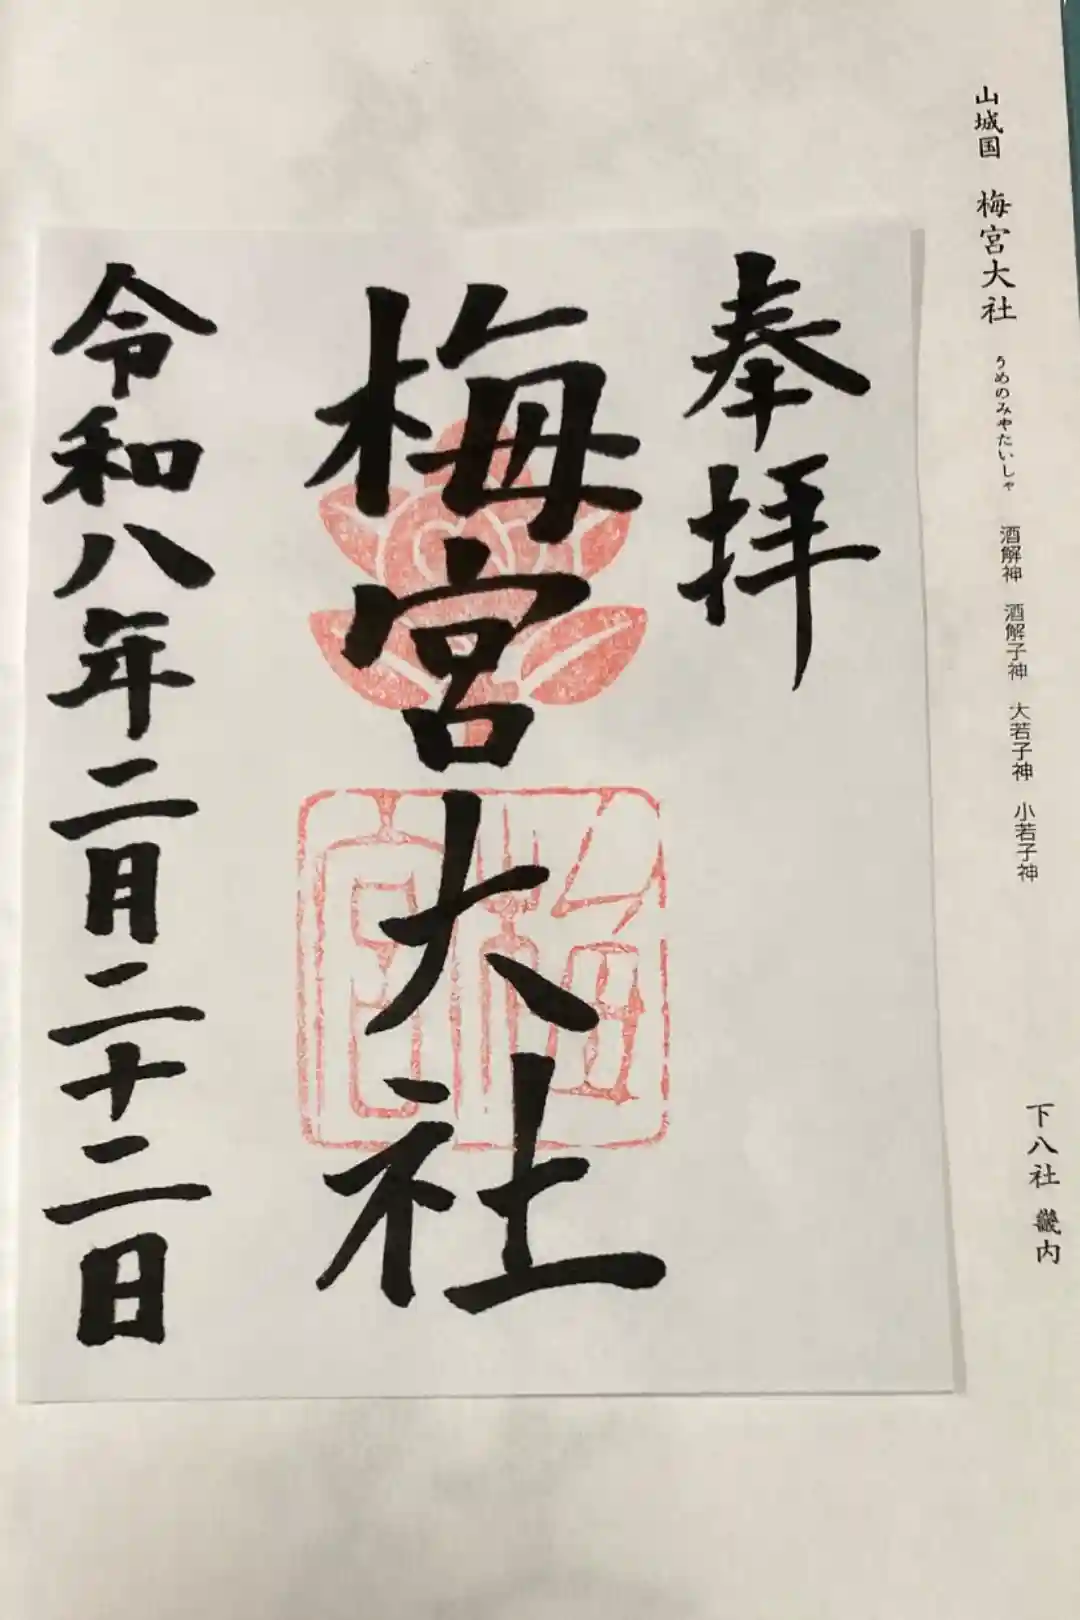 山城国 梅宮大社 うめのみやたいしゃ 酒解神 酒解子神 大若子神 小若子神
下八社 畿内
奉拝
梅宮大社
令和八年二月二十二日
梅宮